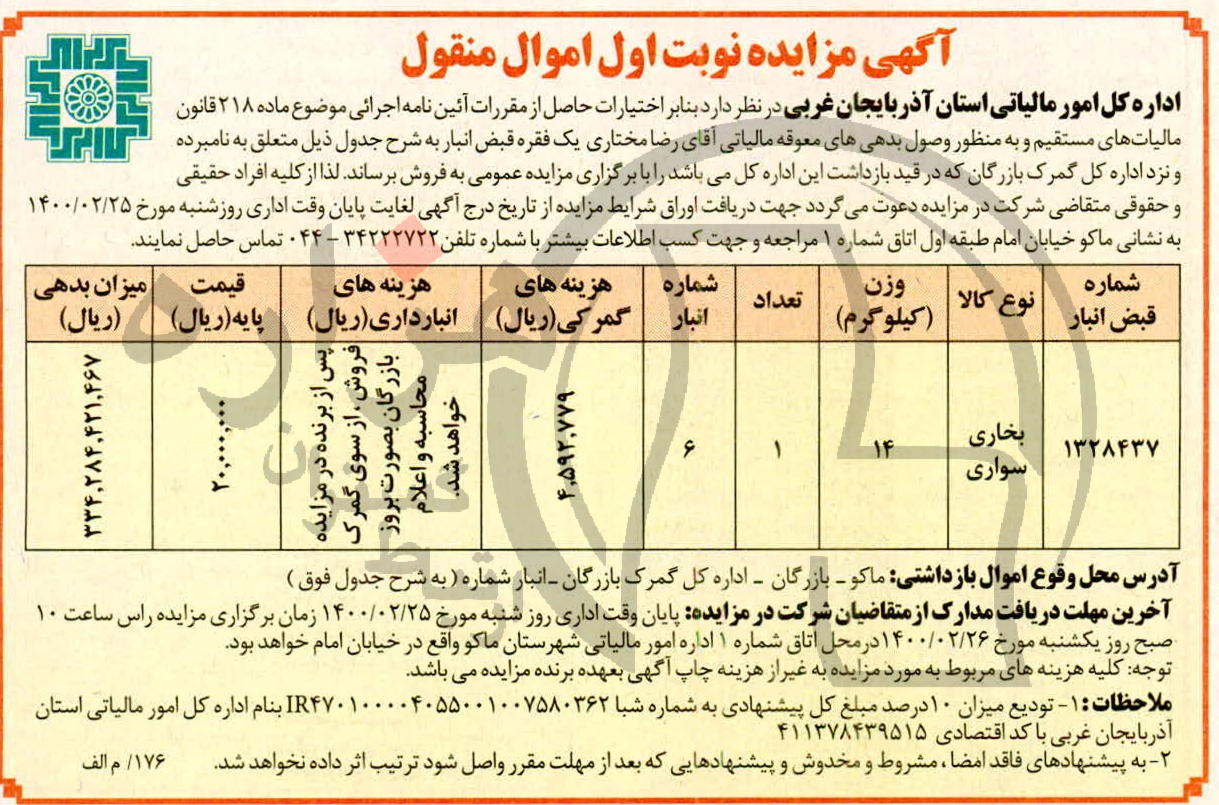 آگهی مزایده نوبت اول اموال منقول
اداره کل امور مالیاتی استان آذربایجان غربی در نظر دارد بنابر اختیارات حاصل از مقررات آئین نامه اجرائی موضوع ماده ۲۱۸ قانون
مالیات‌های مستقیم و به منظور وصول بدهی های معوقه مالیاتی آقای رضا مختاری یک فقره قبض انبار به شرح جدول ذیل متعلق به نامبرده
و نزد اداره کل گمرک بازرگان که در قید بازداشت این اداره کل می باشد را با برگزاری مزایده عمومی به فروش برساند. لذا از کلیه افراد حقیقی
و حقوقی متقاضی شرکت در مزایده دعوت می گردد جهت دریافت اوراق شرایط مزایده از تاریخ درج آگهی لغایت پایان وقت اداری روز شنبه مورخ ۱۴۰۰/۰۲/۲۵
به نشانی ماکو خیابان امام طبقه اول اتاق شماره ۱ مراجعه و جهت کسب اطلاعات بیشتر با شماره تلفن ۳۴۲۲۲۷۲۲ - ۰۴۴ تماس حاصل نمایند.
شماره قبض انبار	نوع کالا	وزن (کیلوگرم)	تعداد	شماره انبار	هزینه های گمرکی(ریال)	هزینه های انبارداری(ریال)	قیمت پایه(ریال)	میزان بدهی (ریال)
۱۳۲۸۴۳۷	بخاری سواری	۱۴	۱	۶	۴,۵۹۲,۷۷۹	پس از برنده در مزایده فروش، از سوی گمرک بازرگان بصورت بروز محاسبه و اعلام خواهد شد.	۲۰,۰۰۰,۰۰۰	۳۳۴,۲۸۴,۴۲۱,۴۶۷
آدرس محل وقوع اموال بازداشتی: ماکو - بازرگان - اداره کل گمرک بازرگان - انبار شماره ( به شرح جدول فوق )
آخرین مهلت دریافت مدارک از متقاضیان شرکت در مزایده: پایان وقت اداری روز شنبه مورخ ۱۴۰۰/۰۲/۲۵ زمان برگزاری مزایده راس ساعت ۱۰
صبح روز یکشنبه مورخ ۱۴۰۰/۰۲/۲۶ درمحل اتاق شماره ۱ اداره امور مالیاتی شهرستان ماکو واقع در خیابان امام خواهد بود.
توجه: کلیه هزینه های مربوط به مورد مزایده به غیر از هزینه چاپ آگهی بعهده برنده مزایده می باشد.
ملاحظات: ۱- تودیع میزان ۱۰درصد مبلغ کل پیشنهادی به شماره شبا IR۴۷۰۱۰۰۰۰۴۰۵۵۰۰۱۰۰۷۵۸۰۳۶۲ بنام اداره کل امور مالیاتی استان
آذربایجان غربی با کد اقتصادی ۴۱۱۳۷۸۴۳۹۵۱۵
۲- به پیشنهادهای فاقد امضا، مشروط و مخدوش و پیشنهادهایی که بعد از مهلت مقرر واصل شود ترتیب اثر داده نخواهد شد. ۱۷۶/ م الف